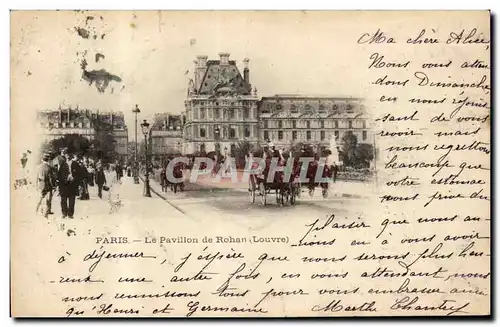 Ma chère Alice,
Nous vous atten
dons Dimanche
en nous réjouis
sant de vous
revoir mais
nous regrettons
beaucoup que
votre estomac
vous prive du
plaisir que nous au
rions eu à vous avoir
à déjeuner, j'espère que nous serons plus heu
reux une autre fois, en vous attendant nous
nous réunissons tous pour vous embrasser ainsi
qu'Henri et Germaine Marthe Chantrey
PARIS. — Le Pavillon de Rohan (Louvre)
CARTHAPOLE.COM